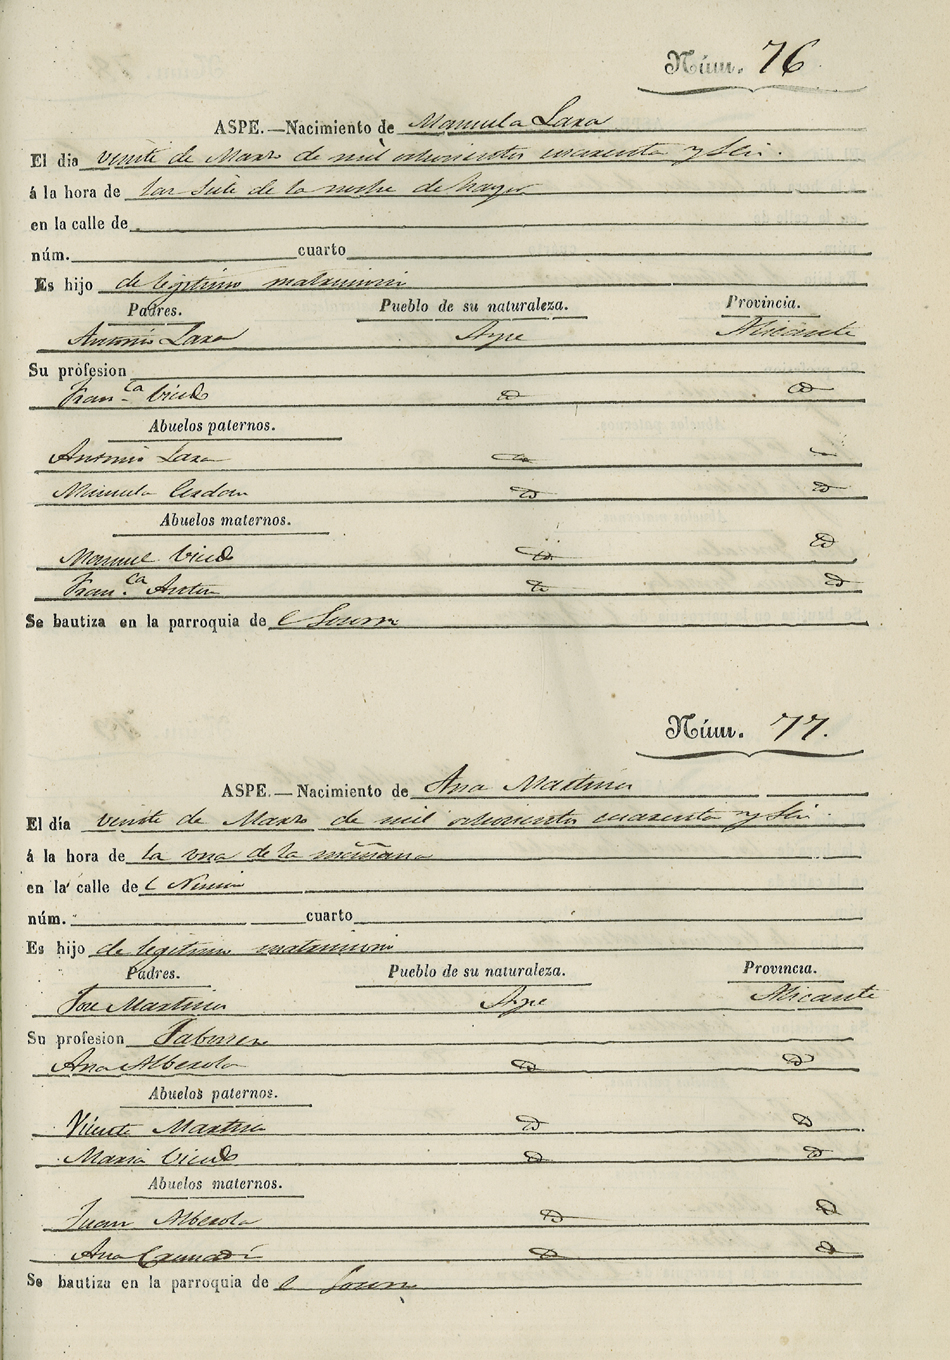 Núm. 76
ASPE.—Nacimiento de Manuela Lara
El dia veinte de Marzo de mil ochocientos cuarenta y Seis.
á la hora de las siete de la noche de hayer
en la calle de
núm. cuarto
Es hijo de legitimo matrimonio
Padres. Pueblo de su naturaleza. Provincia.
Antonio Lara Aspe Alicante
Su profesion
Fran.ca Vicedo id id
Abuelos paternos.
Antonio Lara
Manuela Cerdan id id
Abuelos maternos.
Manuel Vicedo id id
Fran.ca Anton id id
Se bautiza en la parroquia de
Núm. 77.
ASPE.—Nacimiento de Ana Martinez
El día veinte de Marzo de mil ochocientos cuarenta y Seis.
á la hora de la una de la mañana
en la calle de
núm. cuarto
Es hijo de legitimo matrimonio
Padres. Pueblo de su naturaleza. Provincia.
Jose Martinez Aspe Alicante
Su profesion
Ana Alberola id id
Abuelos paternos.
Vicente Martinez id id
Maria Vicedo id id
Abuelos maternos.
Juan Alberola id id
Ana id id
Se bautiza en la parroquia de